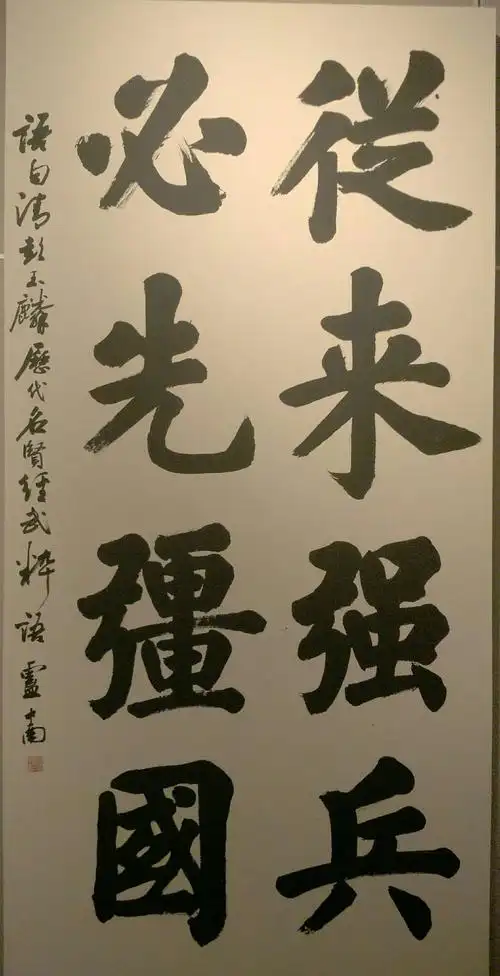 從来强兵
必先彊國
語句清彭玉麟歷代名賢經武粹語 盧中南